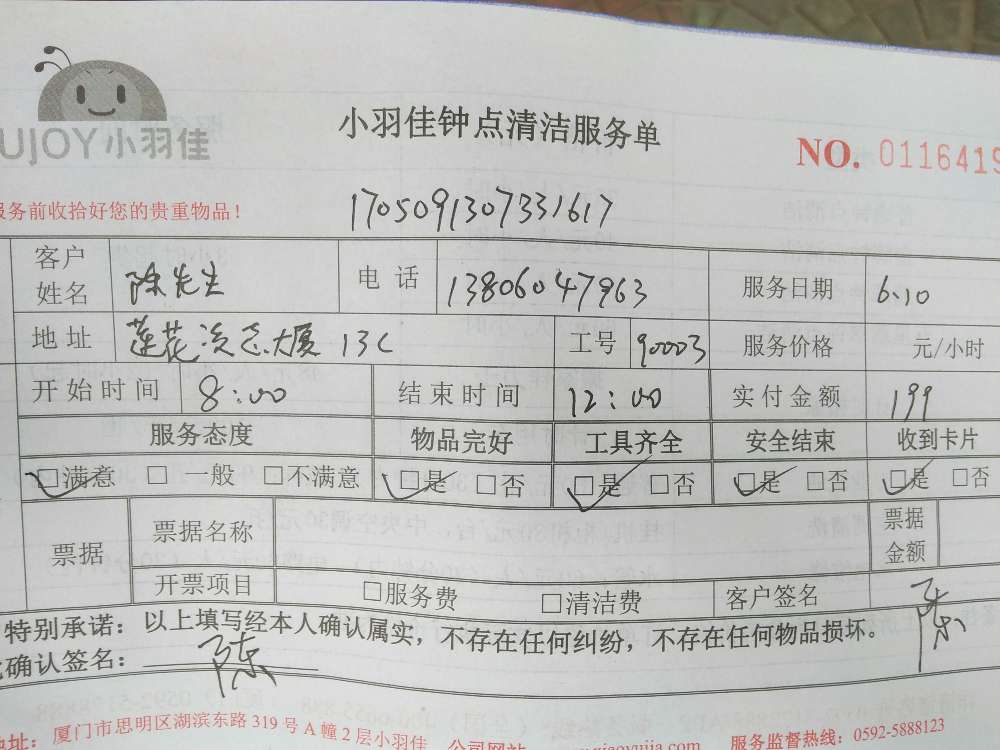 UJOY小羽佳
小羽佳钟点清洁服务单
NO. 0116419
服务前收拾好您的贵重物品!
1705091307331617
客户姓名 陈先生 电话 13806047963 服务日期 6.10
地址 莲花 大厦 13C 工号 90003 服务价格 元/小时
开始时间 8:00 结束时间 12:00 实付金额 199
服务态度 物品完好 工具齐全 安全结束 收到卡片
☑满意 □一般 □不满意 ☑是 □否 ☑是 □否 ☑是 □否 ☑是 □否
票据 票据名称 票据金额
开票项目 □服务费 □清洁费 客户签名 陈
特别承诺:以上填写经本人确认属实,不存在任何纠纷,不存在任何物品损坏。
确认签名: 陈
地址: 厦门市思明区湖滨东路319号A幢2层小羽佳 公司网站 xiaoyujia.com 服务监督热线: 0592-5888123